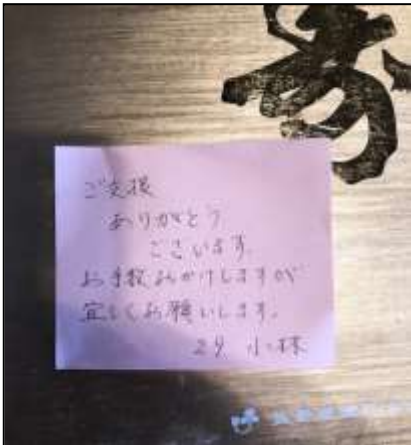 ご支援
ありがとう
ございます。
お手数おかけしますが
宜しくお願いします。
29 小林